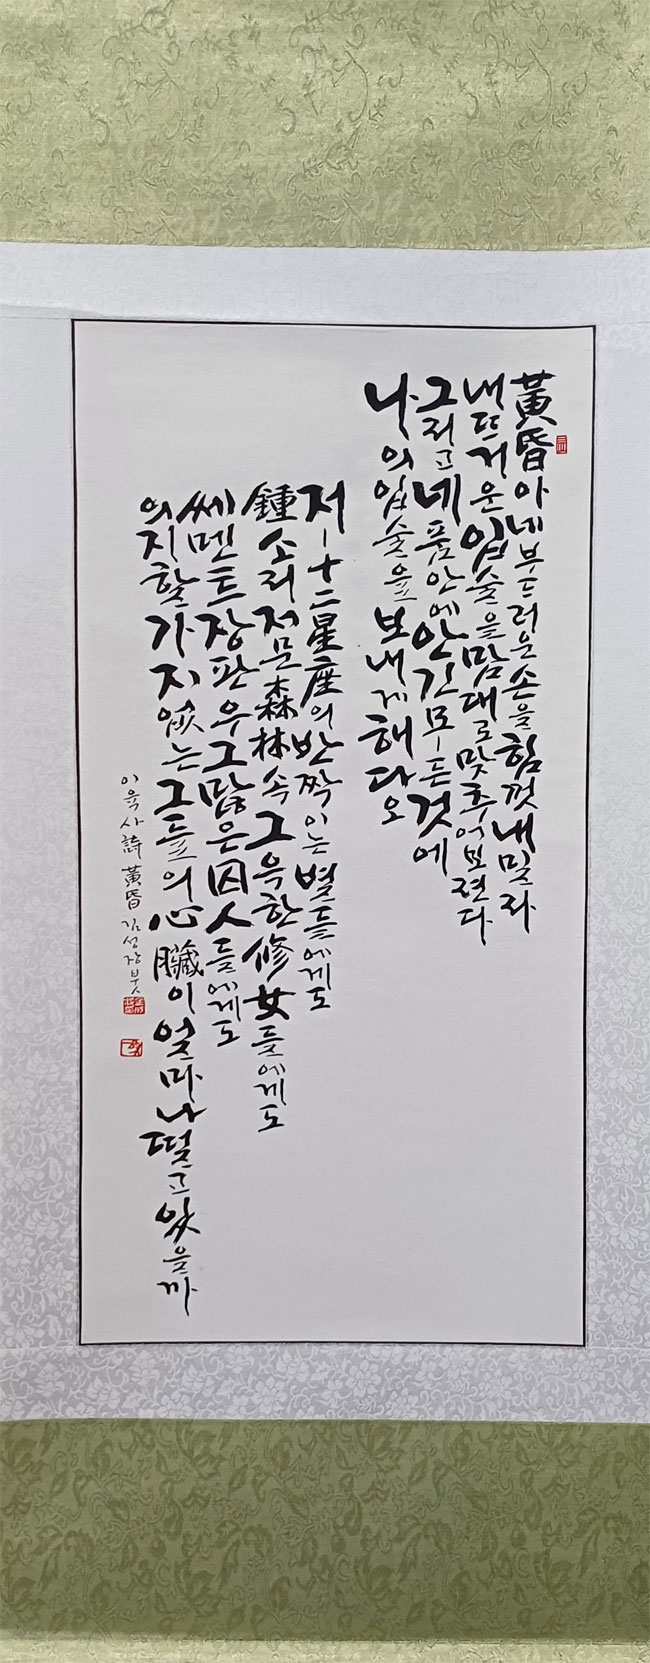 黃昏아 네 부드러운 손을 힘껏 내밀라
내 뜨거운 입술을 맘대로 맞추어보련다
그리고 네 품안에 안긴 모-든 것에
나의 입술을 보내게 해다오
저-十二星座의 반짝이는 별들에게도
鍾소리 저문 森林속 그윽한 修女들에게도
쎄멘트 장판우 그 많은 囚人들에게도
의지할 가지 없는 그들의 心臟이 얼마나 떨고 있을까
이육사 詩 黃昏 김성장 붓